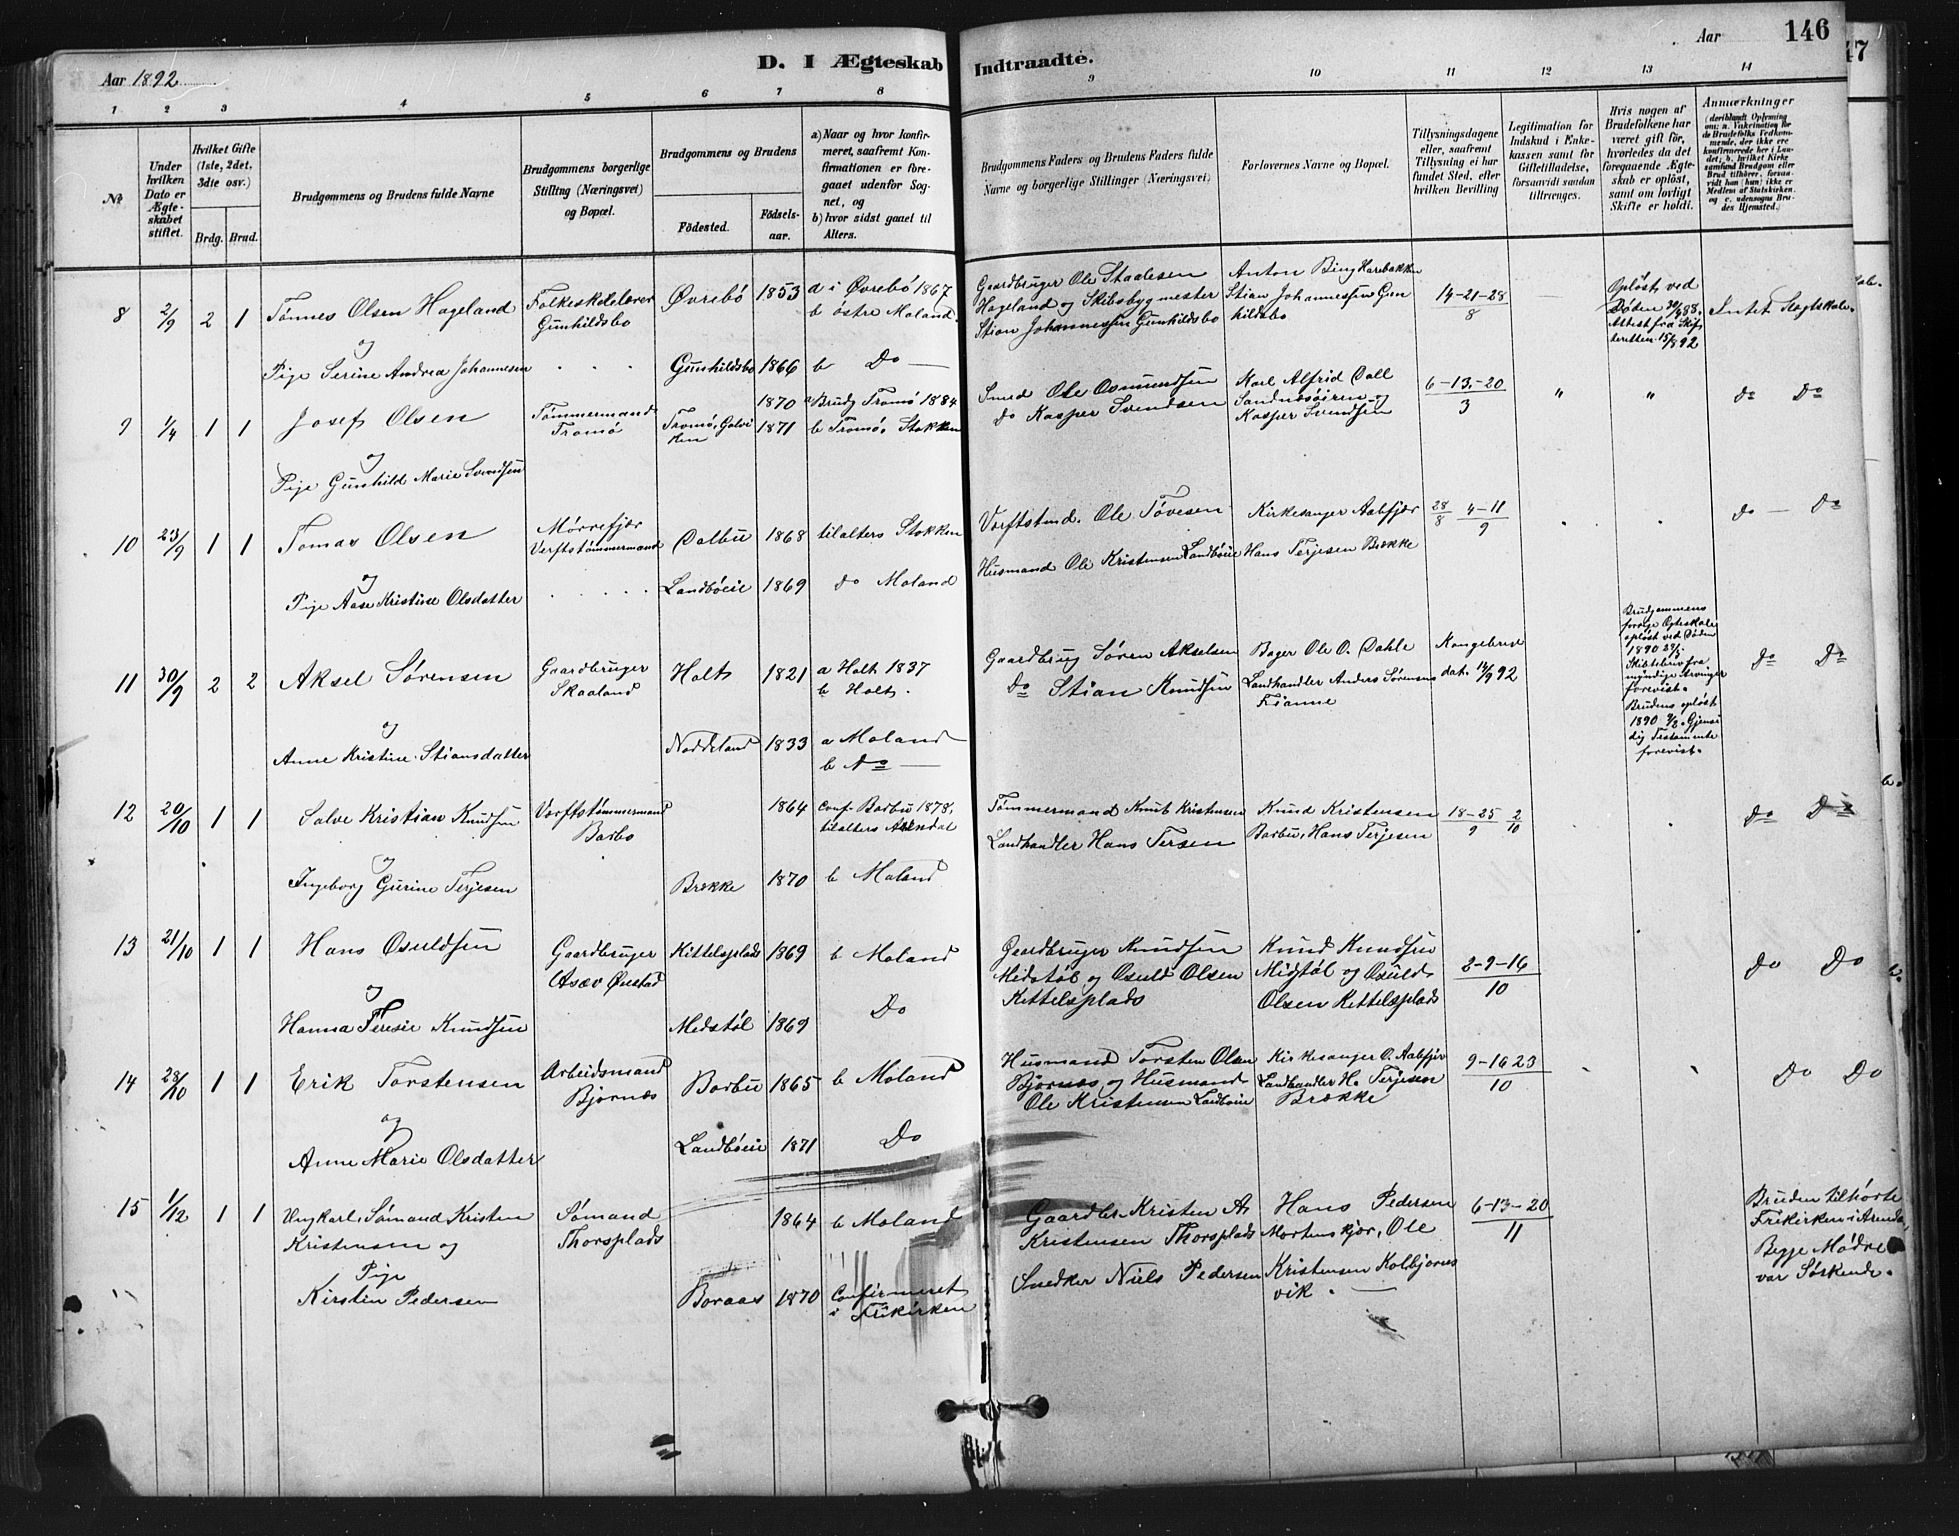 Aar 1892
D. I Ægteskab Indtraadte.
Aar
146
47
1 2 3 4 5 6 7 8 9 10 11 12 13 14
№
Under hvilken Dato er Ægteskabet stiftet.
Hvilket Gifte (1ste, 2det, 3die osv.)
Brdg. Brud.
Brudgommens og Brudens fulde Navne
Brudgommens borgerlige Stilling (Næringsvei) og Bopæl.
Brudgommens og Brudens
Födested.
Födselsaar.
a) Naar og hvor konfirmeret, saafremt Konfirmationen er foregaaet udenfor Sognet, og
b) hvor sidst gaaet til Alters.
Brudgommens Faders og Brudens Faders fulde Navne og borgerlige Stillinger (Næringsvei)
Forlovernes Navne og Bopæl.
Tillysningsdagene eller, saafremt Tillysning ei har fundet Sted, efter hvilken Bevilling
Legitimation for Indskud i Enkekassen samt for Giftetilladelse, forsaavidt saadan tiltrænges.
Hvis nogen af Brudefolkene har været gift för, hvorledes da det foregaaende Ægteskab er oplöst, samt om lovligt Skifte er holdt.
Anmærkninger
8 2/9 2 1 Tønnes Olsen Hageland Folkeskolelærer Gunhildsbo Øvrebö 1853 a i Øvrebö 1867 b östre Moland.
Gaardbruger Ole Staalesen Hageland og Skibsbygmester Stian Johannessen Gunhildsbo
Anton Bing Harebakken Stian Johannessen Gunhildsbo
14-21-28/8 —
Opløst ved Döden
Attest fra Skifteretten 15/8 92
Intet Slægtskab.
og
Pige Serine Andrea Johannesen . . . Gunhildsbo 1866 b Do —
9 1/4 1 1 Josef Olsen Tømmermand Tromø Tromø, 1870 a Brudg Tromø 1884
1871 b Tromø, Stokken
Smed Ole Osmundsen
do Kasper Svendsen
Karl Alfrid Dall
Kasper Svendsen
6-13-20/3 " " do Do
og
Pige Gunhild Marie Svendsen
10 23/9 1 1 Tomas Olsen Mørrefjær Verftstømmermand Dalbu 1868 tilalters Stokken
Værftstmd. Ole Tøvesen Kirkesanger Aabfjær 28/8 4-11/9 do — Do
og
Pige Aase Kristine Olsdatter . . . . . Landbøeie 1869 do Moland
Husmand Ole Kristensen Landbøeie Hans Terjesen Brække
11 30/9 2 2 Aksel Sørensen Gaardbruger Skaaland Holt 1821 a Holt 1837 b Holt.
Gaardbrug Søren Akselsen
Do Stian Knudsen
Bager Ole O. Dahle
Landhandler Anders Sørensen Fianne
Kongebrev dat. 92
Brudgommens forrige Ægteskab opløst ved Døden 1890
Skiftebrev fra myndige Arvinger forevist.
Brudens opløst 1890 Gjensidig Testamente forevist.
Do Do
og
Anne Kristine Stiansdatter Noddeland 1833 a Moland b Do —
12 20/10 1 1 Salve Kristian Knudsen Værftstømmermand Barbo 1864 conf. Barbu 1878, tilalters Arendal
Tømmermand Knut Kristensen
Landhandler Hans Tersen
Knud Kristensen Barbu, Hans Terjesen
18-25/9 2/10 Do Do
og
Ingeborg Gurine Terjesen Brække 1870 b Moland
13 21/10 1 1 Hans Osuldsen Gaardbruger Kittelsplads 1869 b Moland
Gaardbruger Knudsen Midstøl og Osuld Olsen Kittelsplads
Knud Knudsen Midstøl og Osuld Olsen Kittelsplads
2-9-16/10 Do Do
og
Hanna Teresie Knudsen Midstøl 1869 Do
14 28/10 1 1 Erik Torstensen Arbeidsmand Bjørnæs Barbu 1865 b Moland
Husmand Torsten Olsen Bjørnæs og Husmand Ole Kristensen Landbøeie
Kirkesanger O. Aabfjær Landhandler H. Terjesen Brække
9-16 23/10 Do Do
og
Anne Marie Olsdatter Landbøeie 1871 Do
15 1/12 1 1 Ungkarl, Sømand Kristen Kristensen og Sømand Thorsplads 1864 b Moland
Gaardbr. Kristen A. Kristensen Thorsplads
Snedker Niels Pedersen
Hans Pedersen Mortenskjær, Ole Kristensen Kolbjørnsvik. —
6-13-20/11
Bruden tilhørte Frikirken i Arendal,
Begge Mødre var Søskende.
Pige
Kirstin Pedersen Boraas 1870 Confirmeret i Frikirken